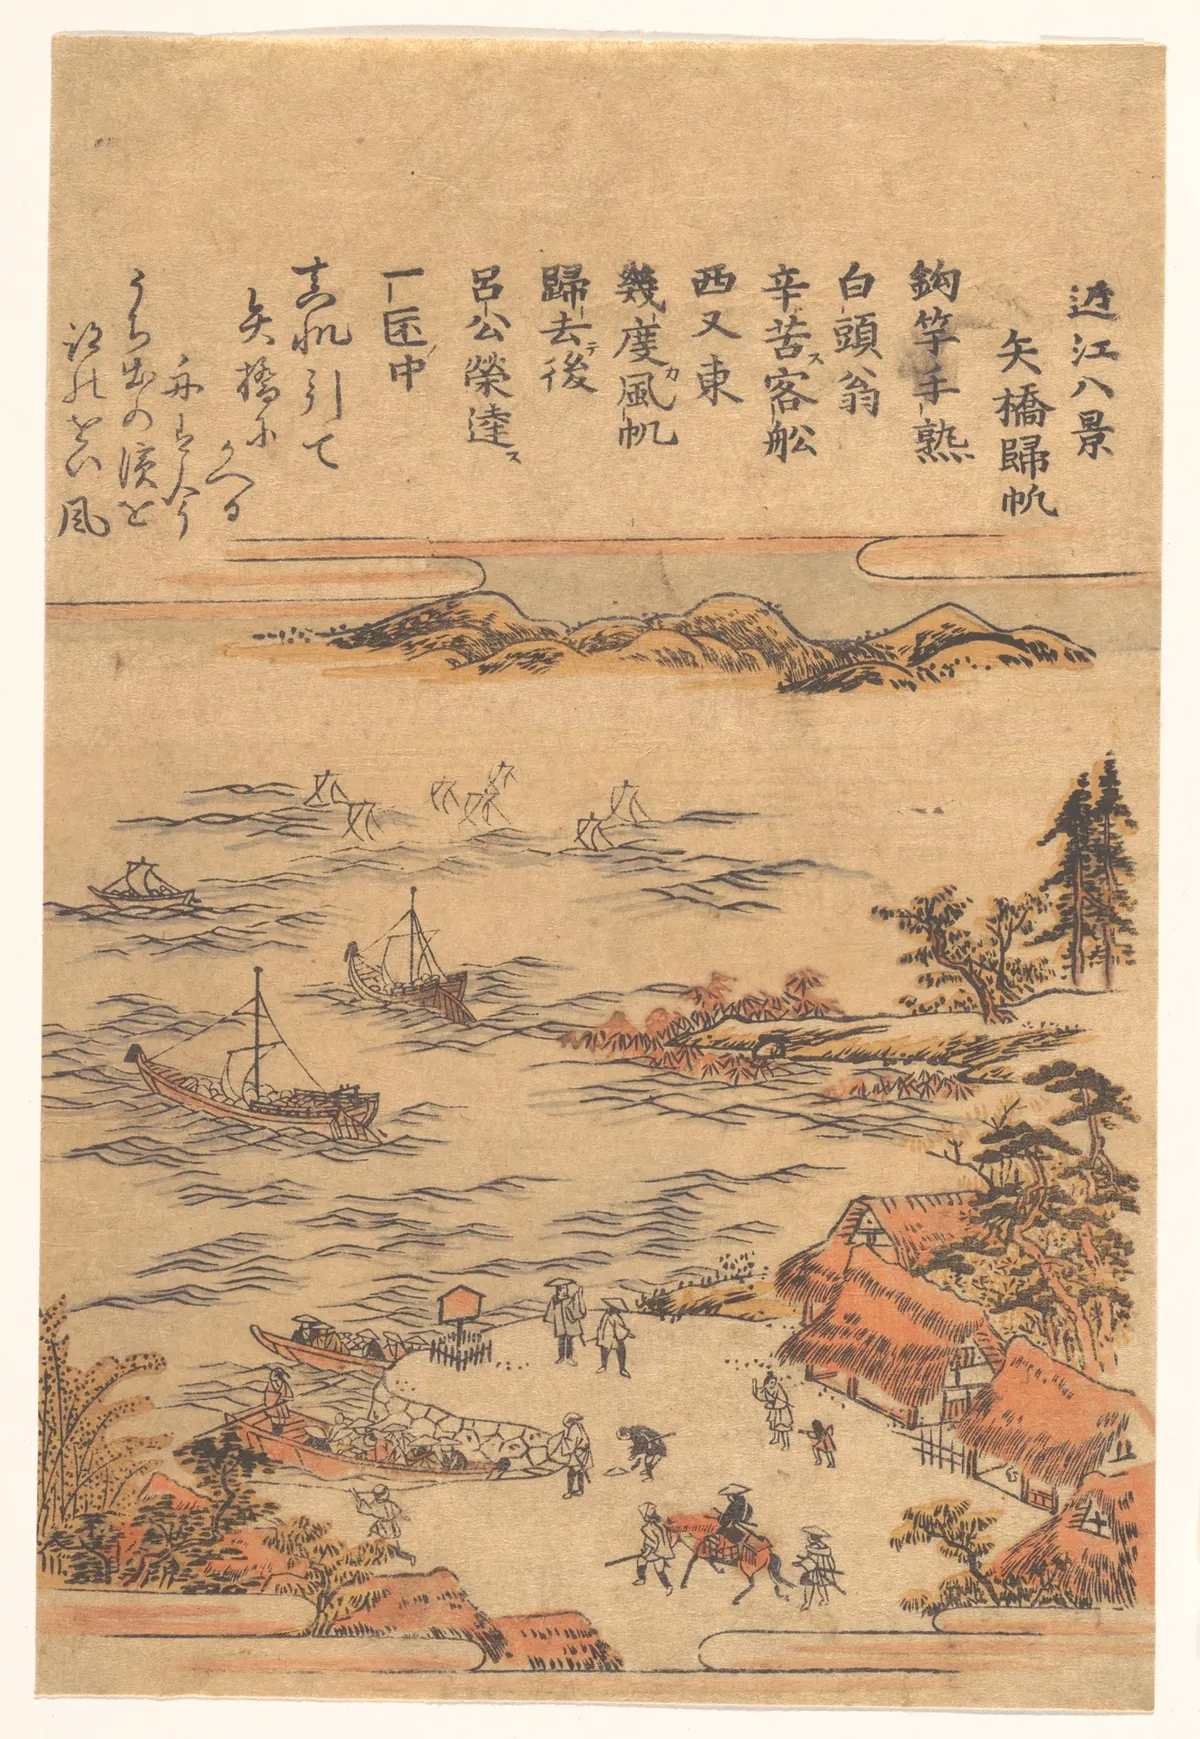 近江八景
矢橋歸帆
鈎竿手熟
白頭翁
辛苦ス客舩
西又東
幾度カ風帆
歸去テ後
呂公榮達ス
一匡ノ中
真帆引て
矢橋に
かへる
舟は今
うち出の濱を
跡のをひ風